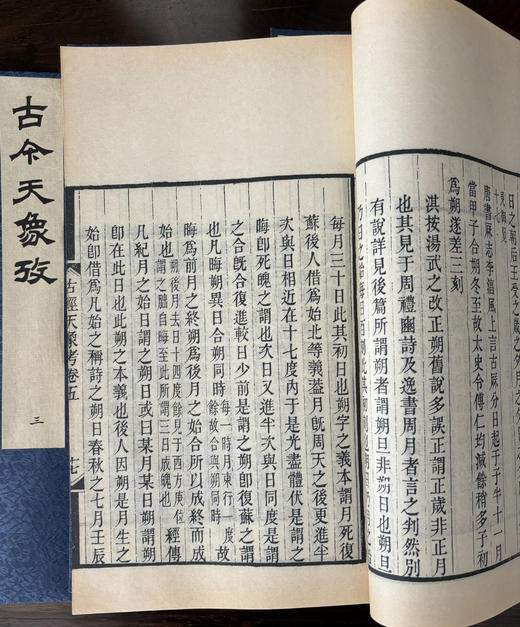 古今天象攷
三
唐書厤志李淳風上言古厤分日起于子半十一月
當甲子合朔冬至故太史令傅仁均減餘稍多子初
爲朔遂差三刻
淇按湯武之改正朔舊說多誤正謂正歲非正月
也其見于周禮豳詩及逸書周月者言之判然別
有說詳見後篇所謂朔者謂朔旦非朔日也朔旦
每月三十日此其初日也朔字之義本謂月死復
蘇後人借爲始北等義葢月旣周天之後更進半
次與日相近在十七度內于是光盡體伏是謂之
晦卽死魄之謂也次日又進半次與日同度謂
之合旣合復進較日少前是謂之朔卽復蘇之謂
也凡晦朔異日合朔同時每一時月東行一度故餘故合與朔同時
晦爲前月之終朔爲後月之始合所以成終而成
始也朔後月去日十四度餘見于西方庚位謂之朏自晦至此所謂三日成魄也經傳
凡紀月之始日謂之朔日或曰某月某日朔謂朔
卽在此日也此朔之本義也後人因朔是月生之
始卽借爲凡始之稱詩之朔日春秋之七月壬辰
古經天象考卷五
十七